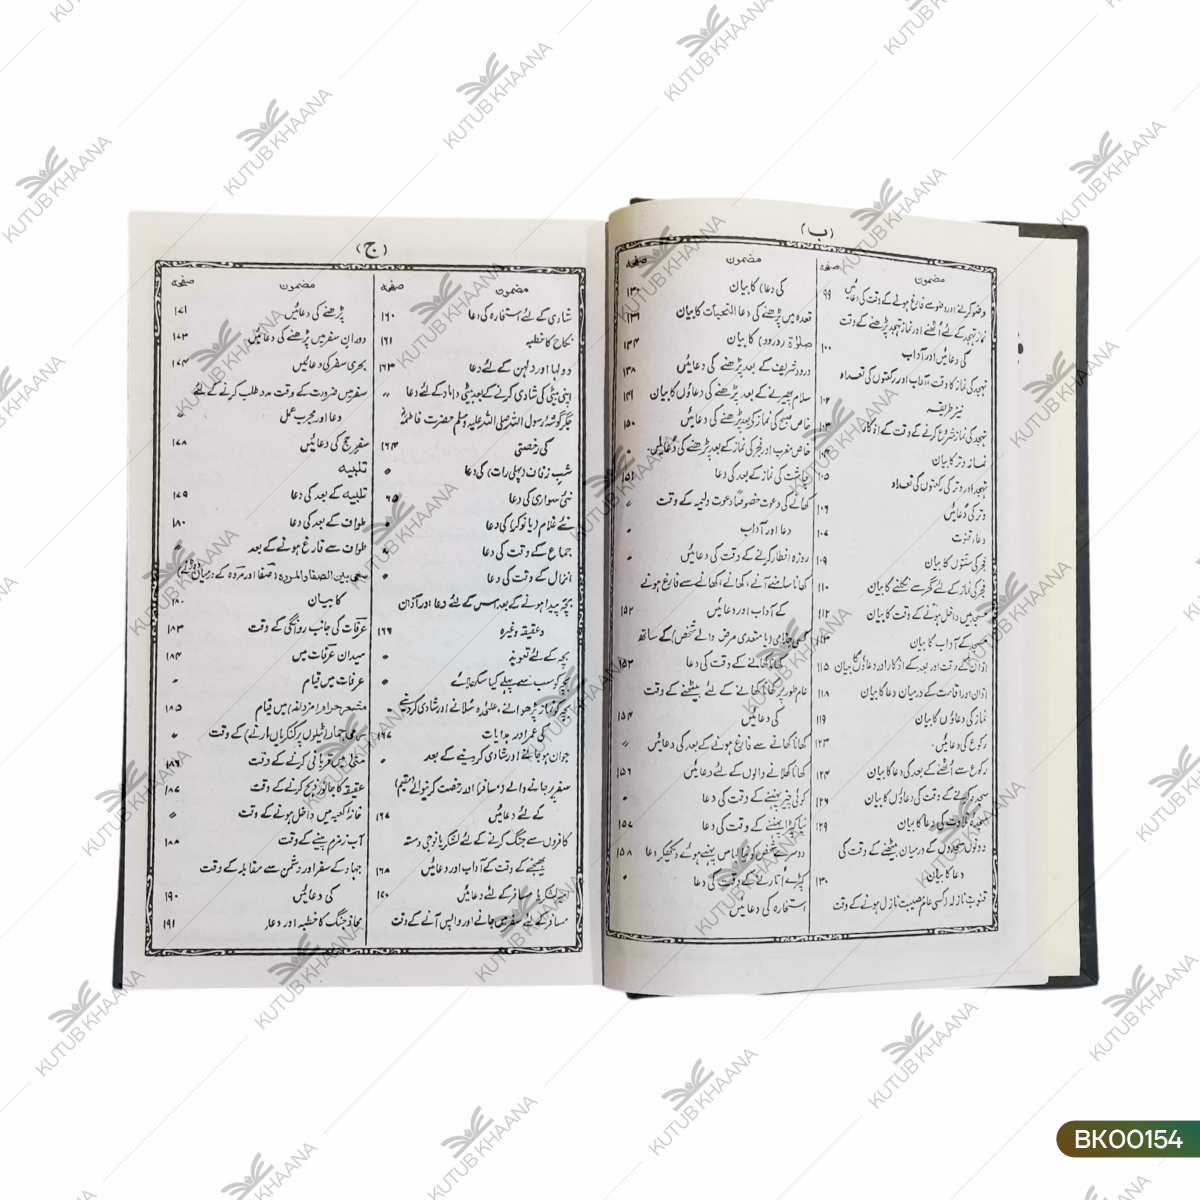 (ب)
مضمون
صفحہ
وضو کرنے اور وضو سے فارغ ہونے کے وقت کی دعائیں ۹۹
نماز تہجد کے لئے اُٹھنے اور نماز تہجد پڑھنے کے وقت
کی دعائیں اور آداب ۱۰۰
تہجد کی نماز کا وقت، آداب اور رکعتوں کی تعداد
نیز طریقہ ۱۰۲
تہجد کی نماز شروع کرنے کے وقت کے اذکار ۱۰۳
نماز وتر کا بیان
تہجد اور وتر کی رکعتوں کی تعداد ۱۰۵
وتر کی دعائیں ۱۰۶
دعاء قنوت ۱۰۷
فجر کی سنتوں کا بیان ۱۰۹
فجر کی نماز کے لئے گھر سے نکلنے کا بیان ۱۱۰
مسجد میں داخل ہونے کے وقت کا بیان ۱۱۲
مسجد کے آداب کا بیان ۱۱۳
اذان کے وقت اور بعد کے اذکار اور دعاؤں کا بیان ۱۱۵
اذان اور اقامت کے درمیان دعا کا بیان ۱۱۸
نماز کی دعاؤں کا بیان ۱۱۹
رکوع کی دعائیں۔ ۱۲۳
رکوع سے اُٹھنے کے بعد کی دعا کا بیان ۱۲۴
سجدہ کرنے کے وقت کی دعاؤں کا بیان ۱۲۶
سجدہ تلاوت کی دعا کا بیان ۱۲۹
دونوں سجدوں کے درمیان بیٹھنے کے وقت کی
دعا کا بیان ۱۳۰
قنوتِ نازلہ (کسی عام مصیبت نازل ہونے کے وقت
مضمون
صفحہ
کی دعا) کا بیان ۱۳۰
قعدہ میں پڑھنے کی دعا التحیات کا بیان ۱۳۱
صلوٰۃ (درود) کا بیان ۱۳۴
درود شریف کے بعد پڑھنے کی دعائیں ۱۳۸
سلام پھیرنے کے بعد پڑھنے کی دعاؤں کا بیان ۱۴۱
خاص صبح کی نماز کے بعد پڑھنے کی دعائیں ۱۵۰
خاص مغرب اور فجر کی نماز کے بعد پڑھنے کی دعائیں۔
چاشت کی نماز کے بعد کی دعا ۱۵۱
کھانے کی دعوت خصوصاً دعوت ولیمہ کے وقت
دعا اور آداب
روزہ افطار کرنے کے وقت کی دعائیں
کھانا سامنے آنے، کھانے، کھانے سے فارغ ہونے
کے آداب اور دعائیں ۱۵۲
کسی جذامی (یا متعدی مرض والے شخص) کے ساتھ
کھانا کھانے کے وقت کی دعا ۱۵۳
عام طور پر کھانا کھانے کے لئے بیٹھنے کے وقت
کی دعائیں ۱۵۴
کھانا کھانے سے فارغ ہونے کے بعد کی دعائیں 〃
کھانا کھلانے والوں کے لئے دعائیں ۱۵۶
کوئی چیز پہننے کے وقت کی دعا
نیا کپڑا پہننے کے وقت کی دعا ۱۵۷
دوسرے شخص کو نیا لباس پہنے ہوئے دیکھ کر دعا ۱۵۸
کپڑے اُتارنے کے وقت کی دعا
استخارہ کی دعائیں
(ج)
مضمون
صفحہ
شادی کے لئے استخارہ کی دعا ۱۶۰
نکاح کا خطبہ ۱۶۱
دولہا اور دلہن کے لئے دعا ۱۶۳
اپنی بیٹی کی شادی کرنے کے بعد بیٹی داماد کے لئے دعا 〃
جگر گوشۂ رسول اللہ صلی اللہ علیہ وسلم حضرت فاطمہؓ
کی رخصتی ۱۶۴
شبِ زفاف (پہلی رات) کی دعا
نئی سواری کی دعا ۱۶۵
نئے غلام (یا نوکر) کی دعا
جماع کے وقت کی دعا
انزال کے وقت کی دعا
بچہ پیدا ہونے کے بعد اس کے لئے دعا اور آذان
و عقیقہ وغیرہ ۱۶۶
بچہ کے لئے تعویذ
بچہ کو سب سے پہلے کیا سکھلائے
بچہ کو نماز پڑھوانے، علیٰحدہ سُلانے اور شادی کر دینے
کی عمر اور ہدایات ۱۶۷
جوان ہو جانے اور شادی کر دینے کے بعد
سفر پر جانے والے (مسافر) اور رخصت کرنیوالے (مقیم)
کے لئے دعائیں ۱۶۷
کافروں سے جنگ کرنے کے لئے لشکر یا فوجی دستہ
بھیجنے کے وقت کے آداب اور دعائیں ۱۶۸
امیر لشکر یا مسافر کے لئے دعائیں ۱۷۰
مسافر کے لئے سفر میں جانے اور واپس آنے کے وقت
مضمون
صفحہ
پڑھنے کی دعائیں ۱۷۱
دورانِ سفر میں پڑھنے کی دعائیں ۱۷۳
بحری سفر کی دعائیں ۱۷۴
سفر میں ضرورت کے وقت مدد طلب کرنے کے لئے
دعا اور مجرب عمل 〃
سفرِ حج کی دعائیں ۱۷۸
تلبیہ
تلبیہ کے بعد کی دعا ۱۷۹
طواف کے بعد کی دعا ۱۸۰
طواف سے فارغ ہونے کے بعد
سعی بین الصفا والمروہ (صفا اور مروہ کے درمیان دوڑنے)
کا بیان ۱۸۰
عرفات کی جانب روانگی کے وقت ۱۸۳
میدان عرفات میں ۱۸۴
عرفات میں قیام
مشعر حرام (مزدلفہ) میں قیام ۱۸۵
رمی جمار (ٹیلوں پر کنکریاں مارنے) کے وقت 〃
منیٰ میں قربانی کرنے کے وقت ۱۸۶
عقیقہ کا جانور ذبح کرنے کے وقت ۱۸۷
خانۂ کعبہ میں داخل ہونے کے وقت 〃
آبِ زمزم پینے کے وقت ۱۸۸
جہاد کے سفر اور دشمن سے مقابلہ کے وقت
کی دعائیں ۱۹۰
محاذ جنگ کا خطبہ اور دعا ۱۹۱
KUTUB KHAANA
BK00154